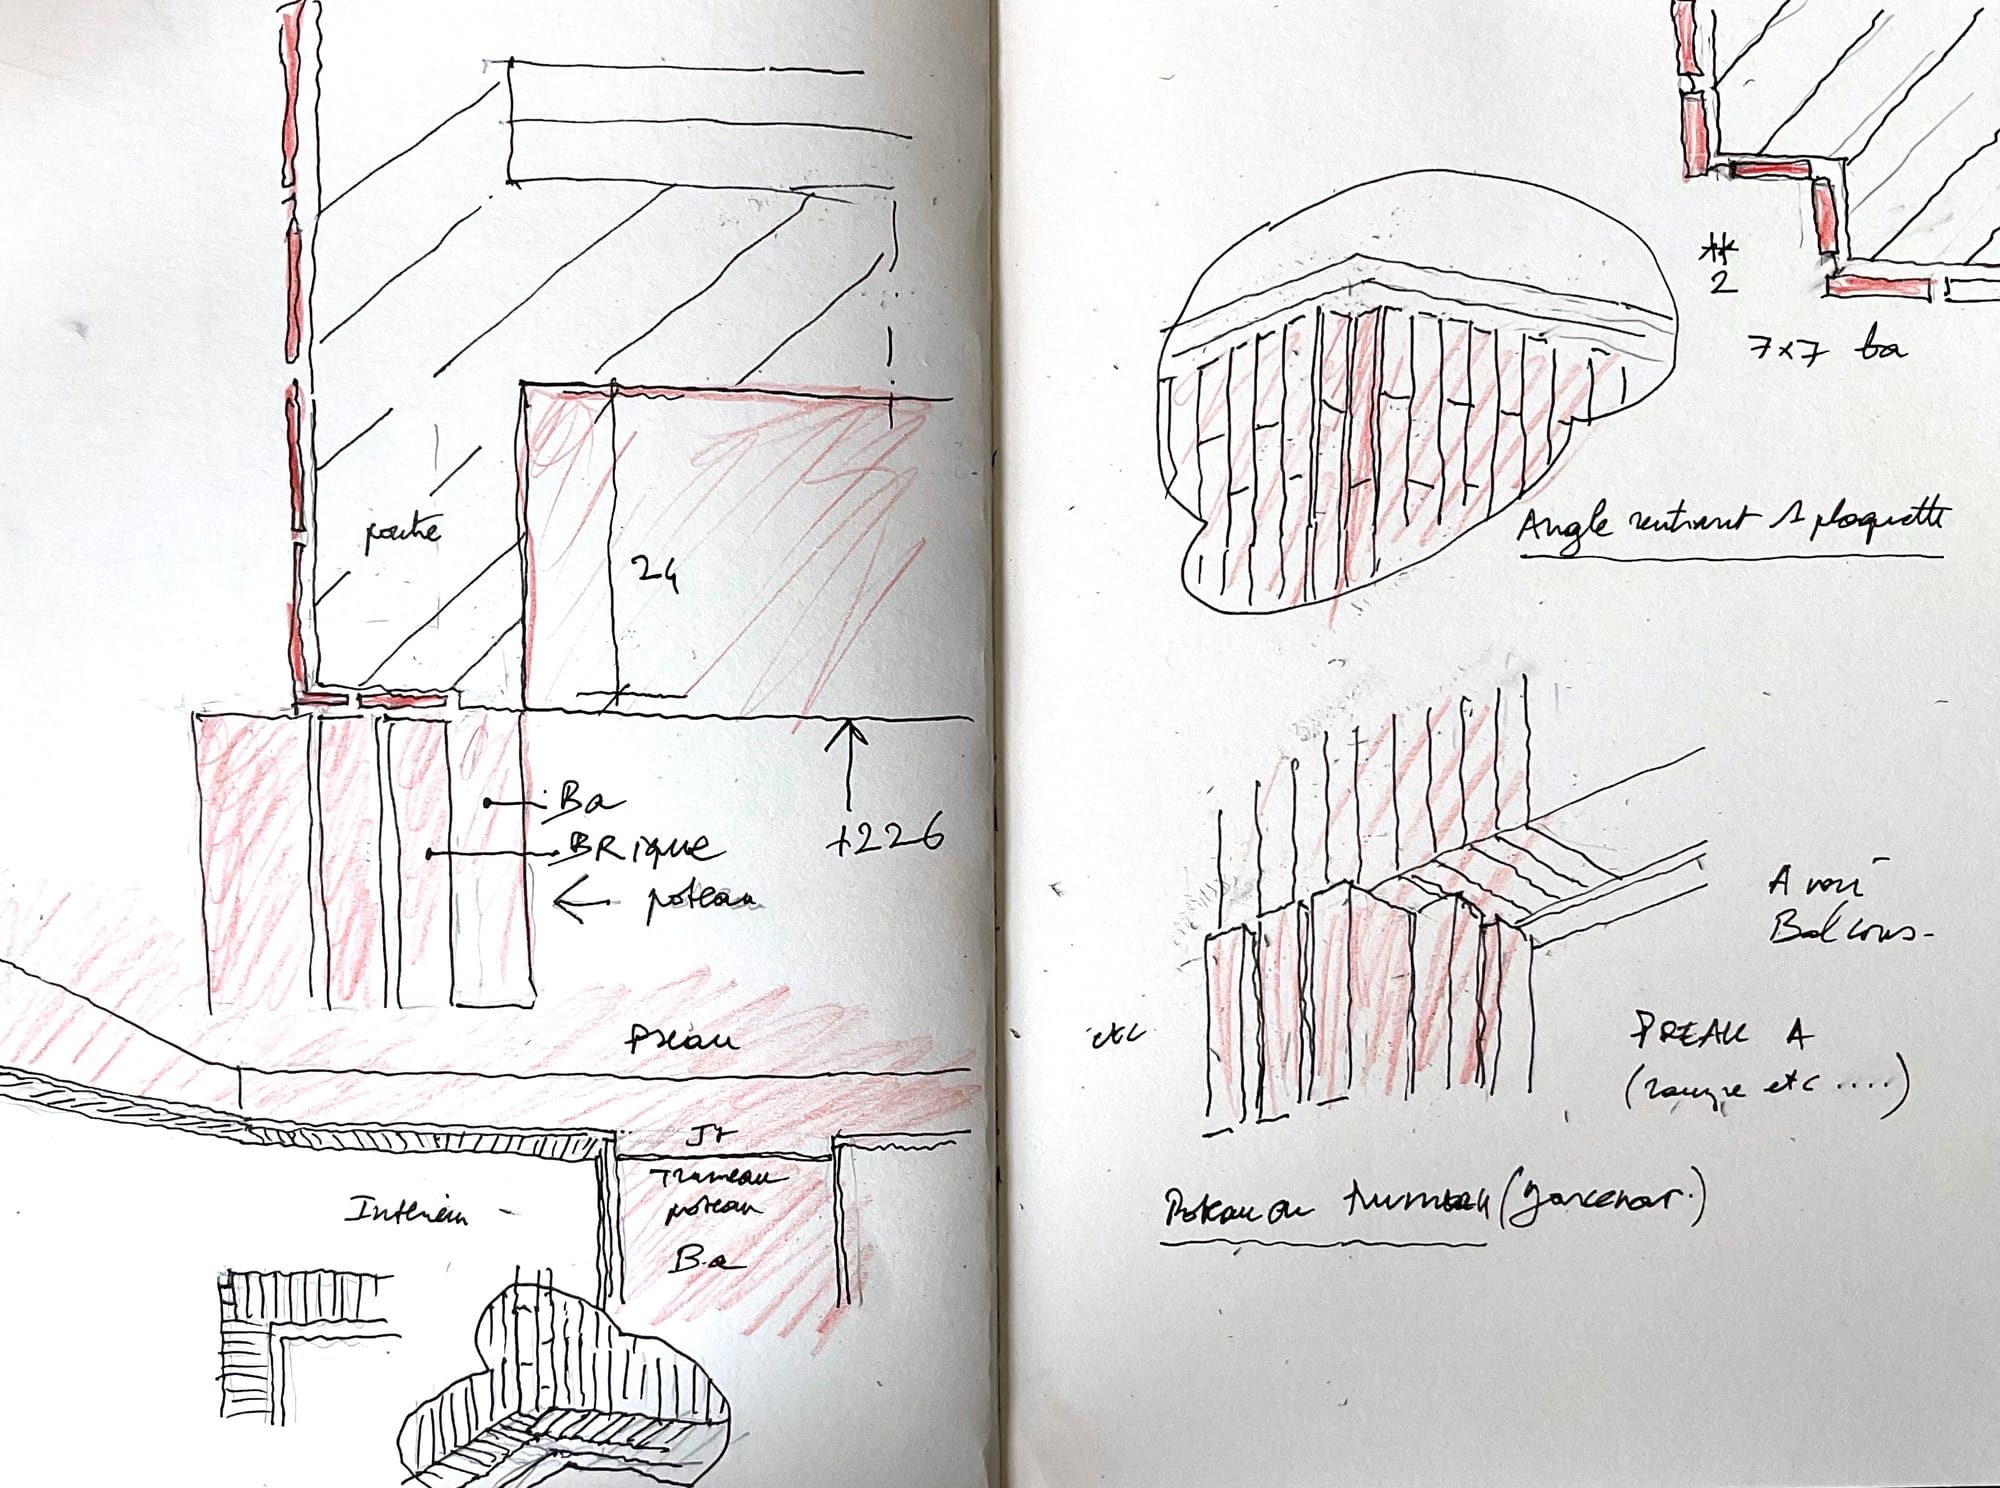 poutre
24
Ba
BRique
poteau
+226
Préau
Jt
Trumeau
poteau
Ba
Intérieur
2
7x7 ba
Angle rentrant 1 plaquette
A voir
Balcons-
etc
PREAU A
(        etc ....)
Poteau ou trumeau